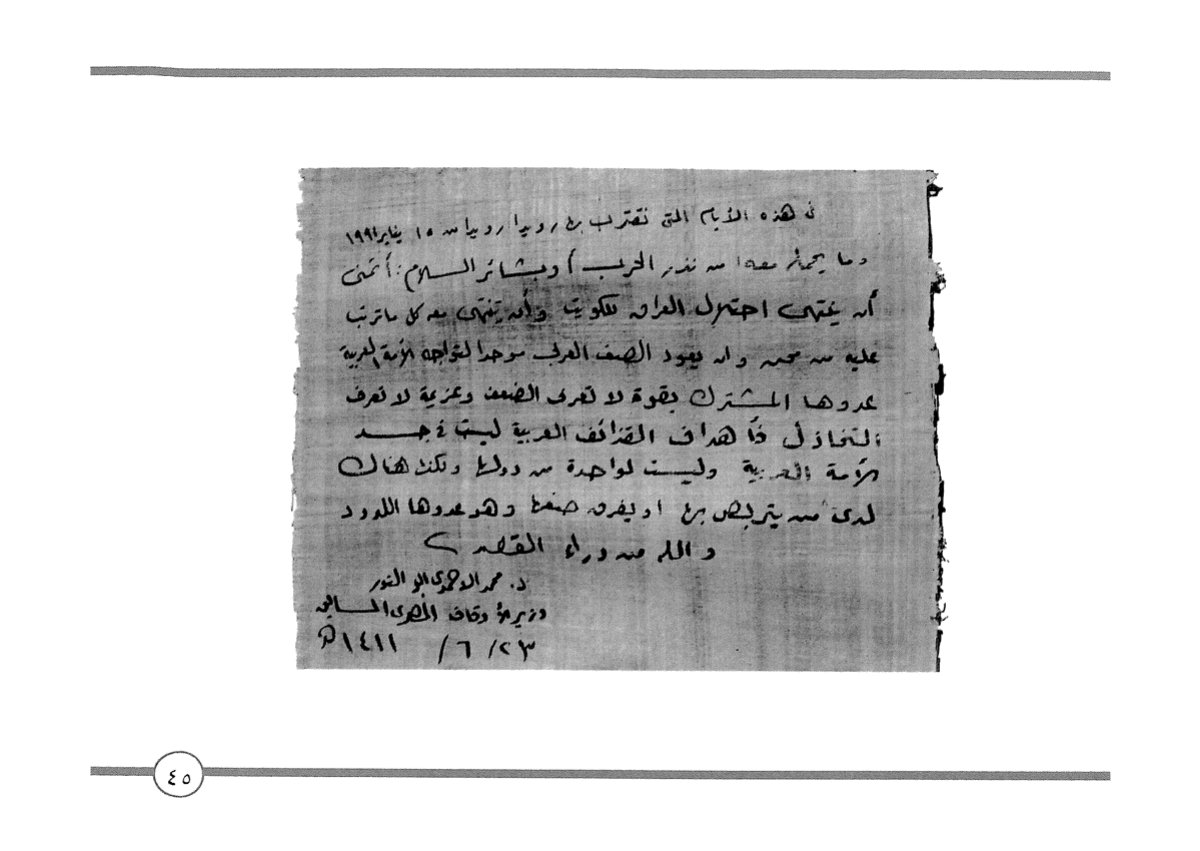 فى هذه الأيام التى نقترب بها رويدا رويدا من ١٥ يناير ١٩٩١
وما يحمل معه من نذر الحرب / وبشائر السلام : أتمنى
أن ينتهى احتلال العراق للكويت وأن ينتهى معه كل ما ترتب
عليه من محن وان يعود الصف العربى موحدا لتواجه الأمة العربية
عدوها المشترك بقوة لا تعرف الضعف وعزيمة لا تعرف
التخاذل فأهداف القذائف العربية ليست فى جسد
الأمة العربية وليست لواحدة من دولها ولكن هناك
لدى من يتربص بها او يفرق صفها وهو عدوها اللدود
والله من وراء القصد
د. محمد الاحمدى ابو النور
وزير الأوقاف المصرى السابق
٢٣ / ٦ / ١٤١١ هـ
٤٥